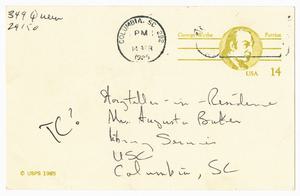 349 Queen
29180
COLUMBIA, SC 292
PM
1985
George Wythe Patriot
USA 14
TC?
Storyteller-in-Residence
Mrs Augusta Baker
Library Service
USC
Columbia, SC
© USPS 1985